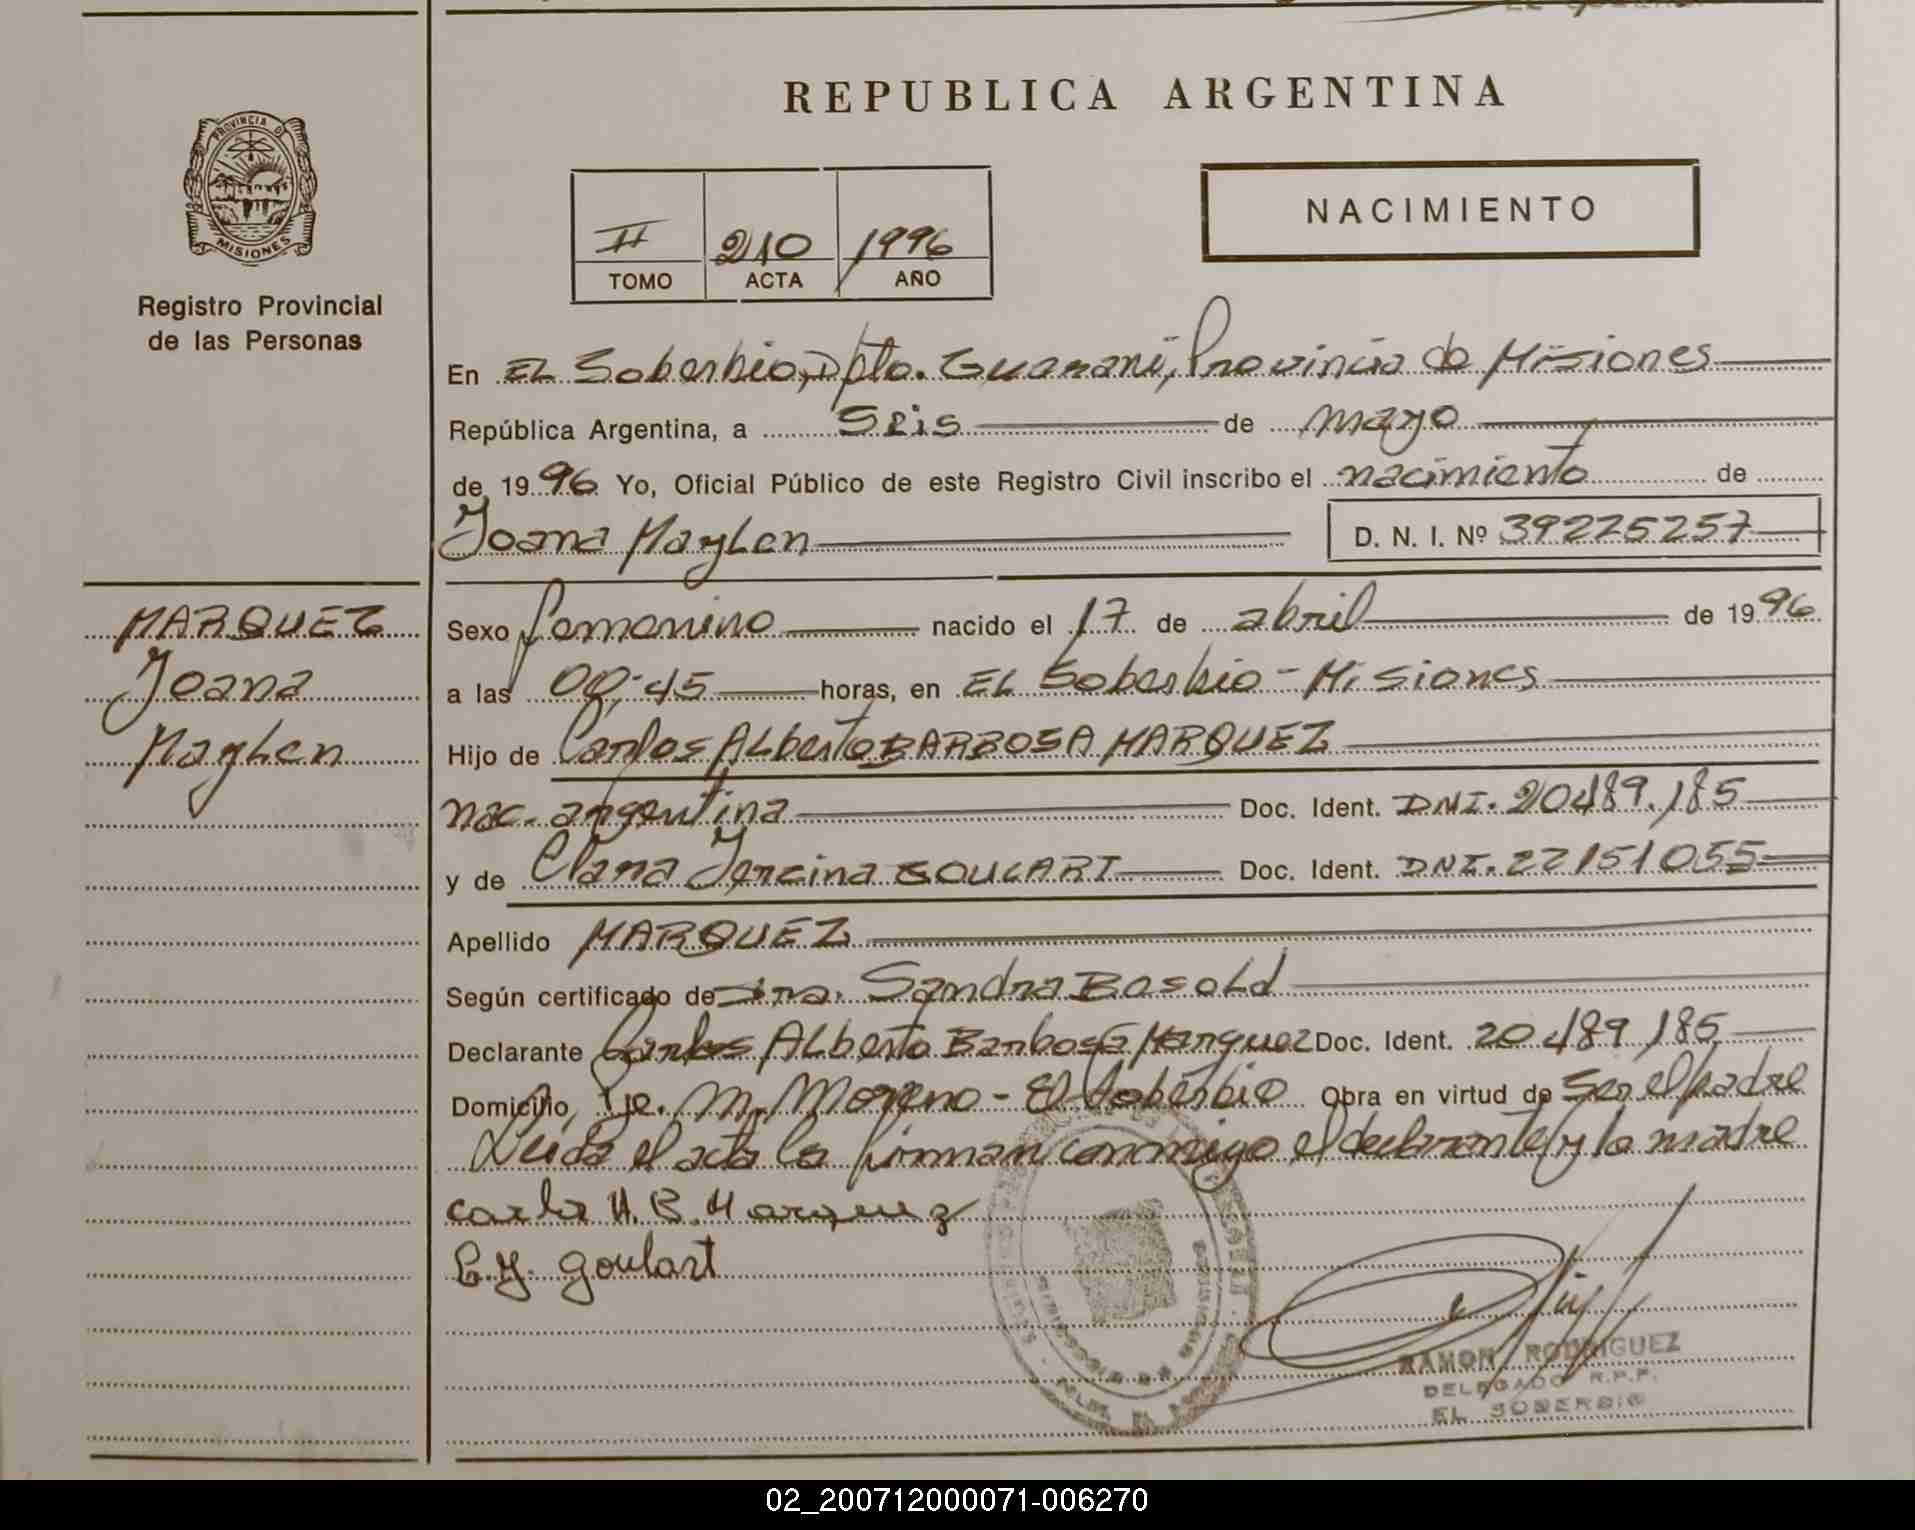 REPUBLICA ARGENTINA
PROVINCIA D
MISIONES
Registro Provincial
de las Personas
II 210 1996
TOMO ACTA AÑO
NACIMIENTO
En EL Soberbio, Dpto. Guarani, Provincia de Misiones
República Argentina, a seis de mayo
de 1996 Yo, Oficial Público de este Registro Civil inscribo el nacimiento de
Joana MayLen D. N. I. Nº 39225257
MARQUEZ
Joana
MayLen
Sexo femenino nacido el 17 de abril de 1996
a las 00:45 horas, en EL Soberbio - Misiones
Hijo de Carlos ALberto BARBOSA MARQUEZ
nac. argentina Doc. Ident. DNI. 20489.185
y de Clara Jercina GOULART Doc. Ident. DNI. 22151055
Apellido MARQUEZ
Según certificado de Dra. Sandra BosoLd
Declarante Carlos ALberto Barbosa Marquez Doc. Ident. 20489185
Domicilio, Pje. M. Moreno - El Soberbio Obra en virtud de ser el padre
Leida el acta la firman conmigo el declarante y la madre
Carlos A. B. Marquez
C.J. goulart
RAMON RODRIGUEZ
DELEGADO R.P.P.
EL SOBERBIO
02_200712000071-006270